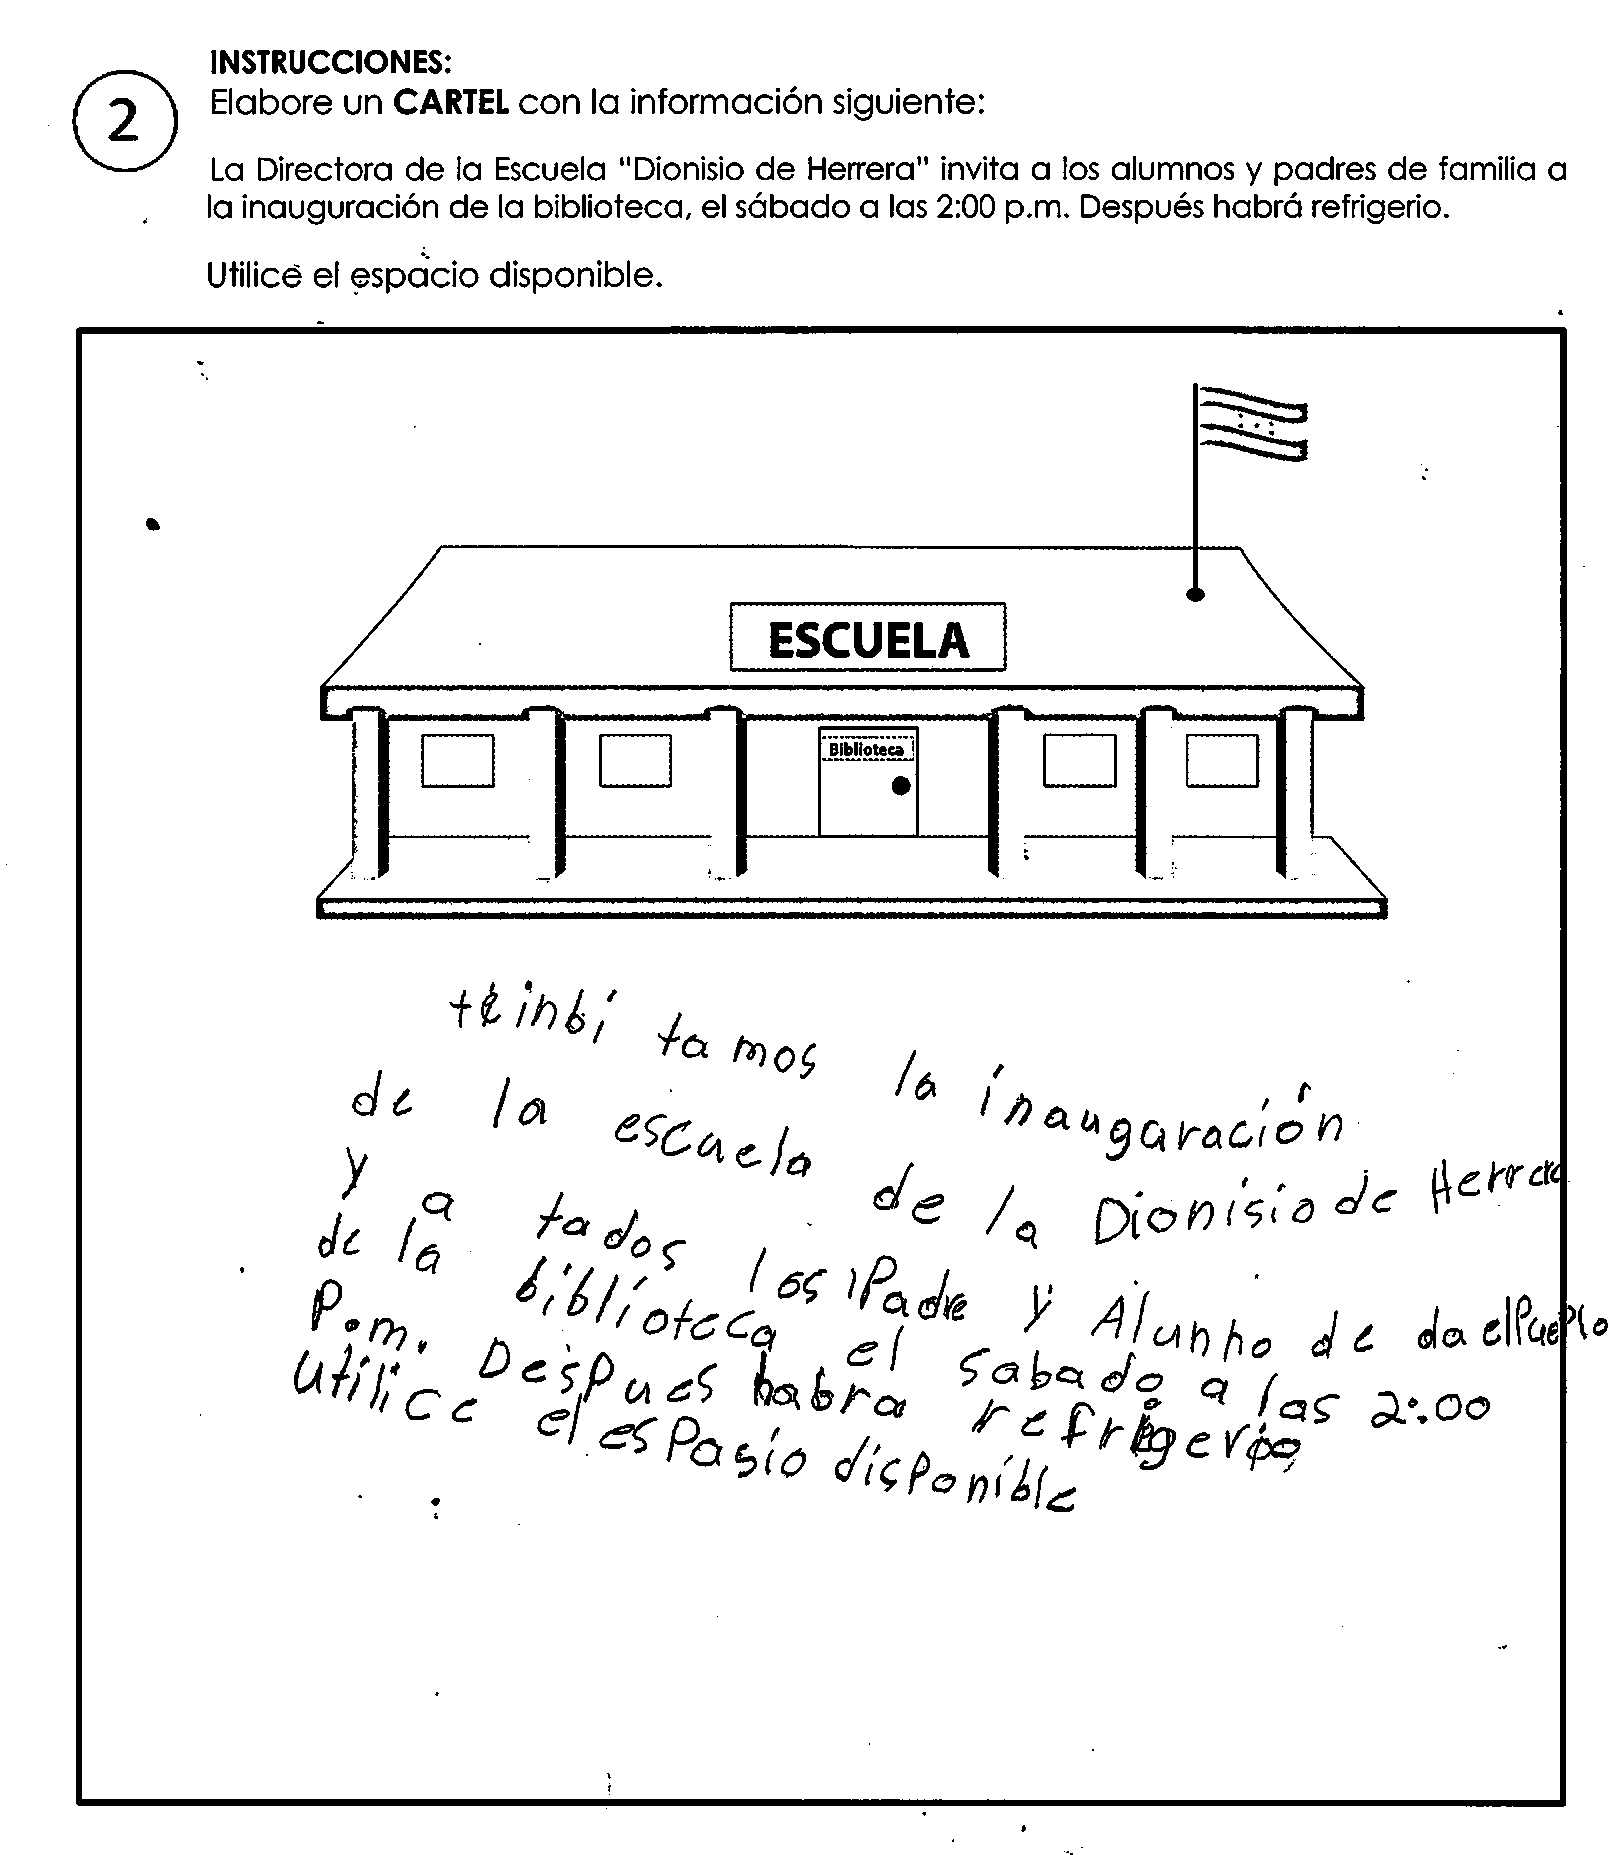 INSTRUCCIONES:
2
Elabore un CARTEL con la información siguiente:
La Directora de la Escuela "Dionisio de Herrera" invita a los alumnos y padres de familia a
la inauguración de la biblioteca, el sábado a las 2:00 p.m. Después habrá refrigerio.
Utilice el espacio disponible.
ESCUELA
Biblioteca
te inbi tamos la inauguración
de la escuela de la Dionisio de Herrera
y a tados los Padre y Alunno de da el Pueplo
de la biblioteca el sabado a las 2:00
P.m. Despues habra refrigerio
Utilice el espasio disponible